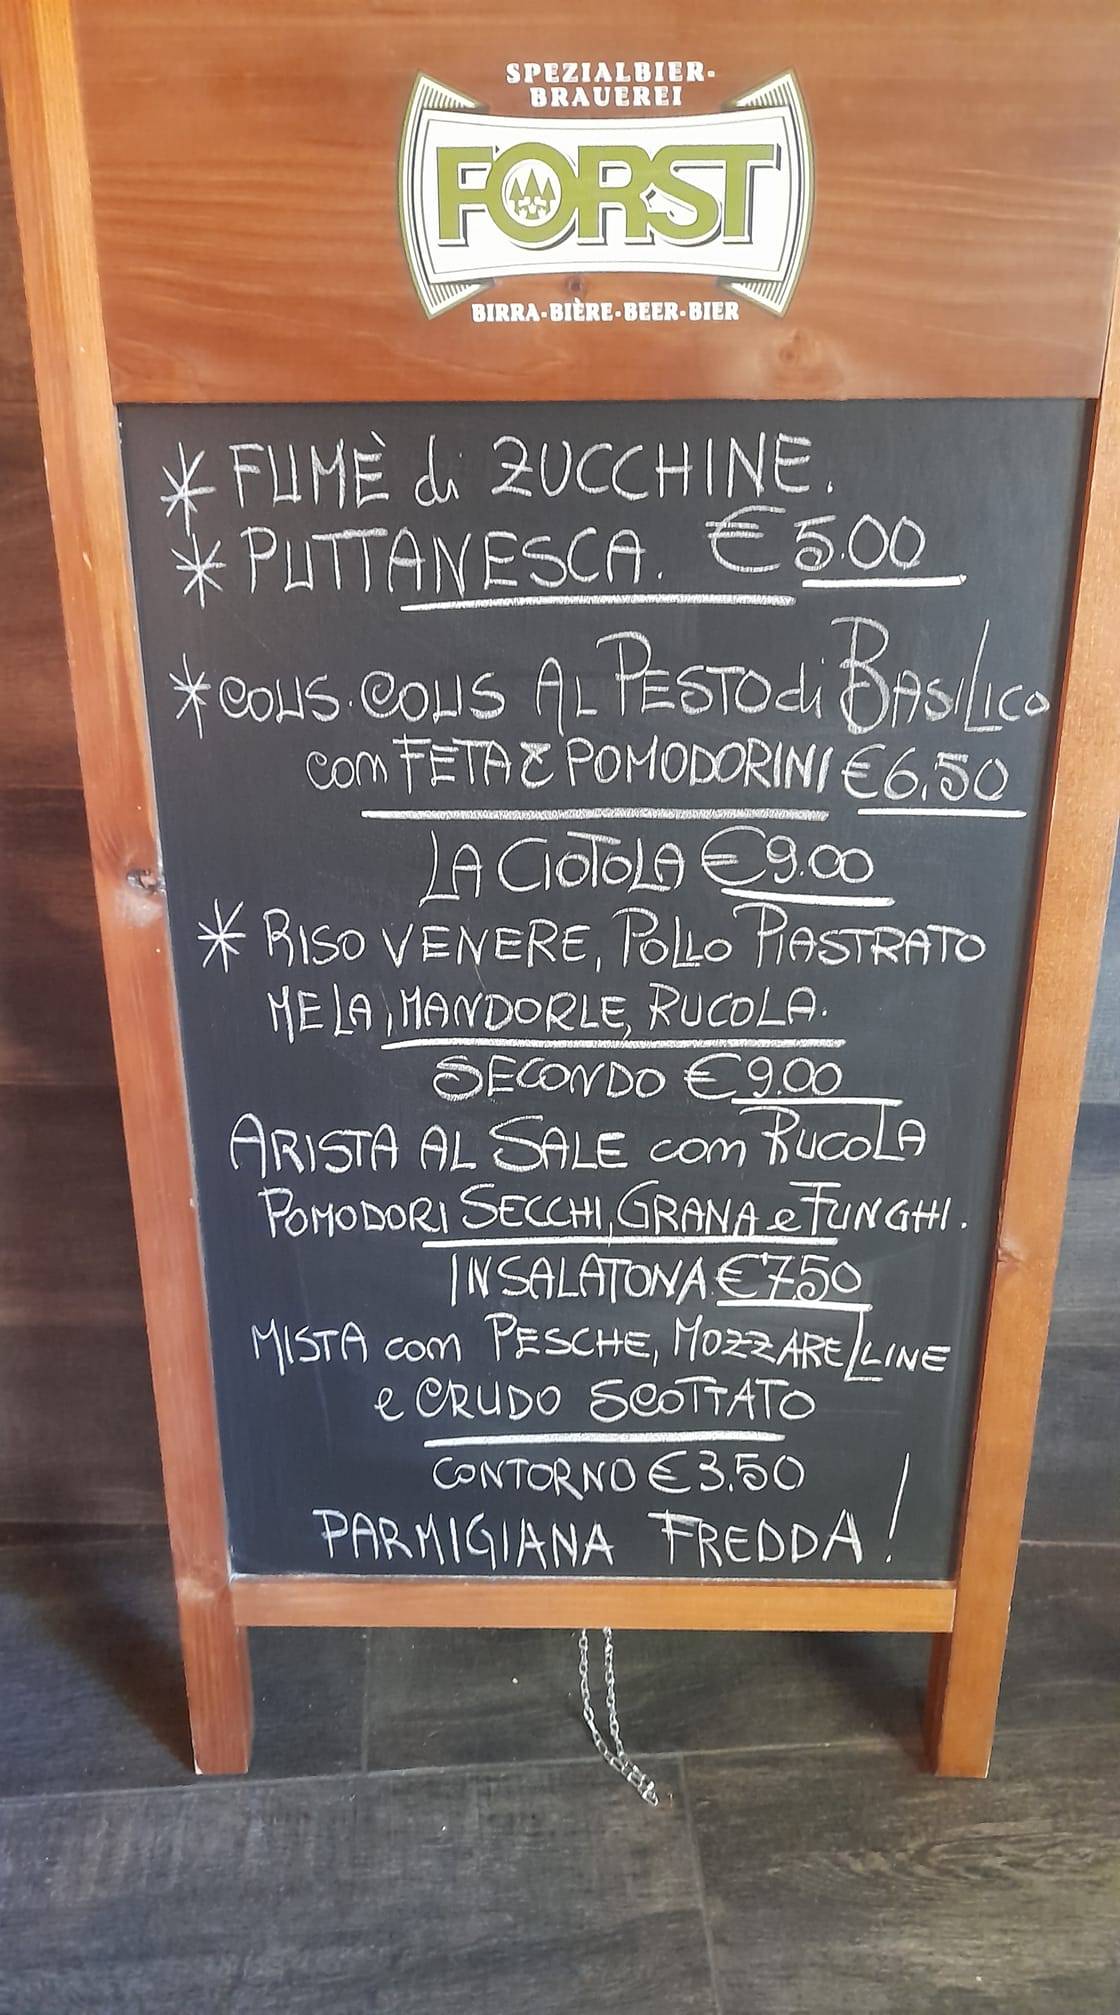 SPEZIALBIER-
BRAUEREI
FORST
BIRRA-BIÈRE-BEER-BIER
* FUMÈ di ZUCCHINE.
* PUTTANESCA. € 5.00
* COUS.COUS AL PESTO di BASILICO
con FETA & POMODORINI € 6.50
LA CIOTOLA € 9.00
* RISO VENERE, POLLO PIASTRATO
MELA, MANDORLE, RUCOLA.
SECONDO € 9.00
ARISTA AL SALE con RUCOLA
POMODORI SECCHI, GRANA e FUNGHI.
INSALATONA € 7.50
MISTA con PESCHE, MOZZARELLINE
e CRUDO SCOTTATO
CONTORNO € 3.50
PARMIGIANA FREDDA!